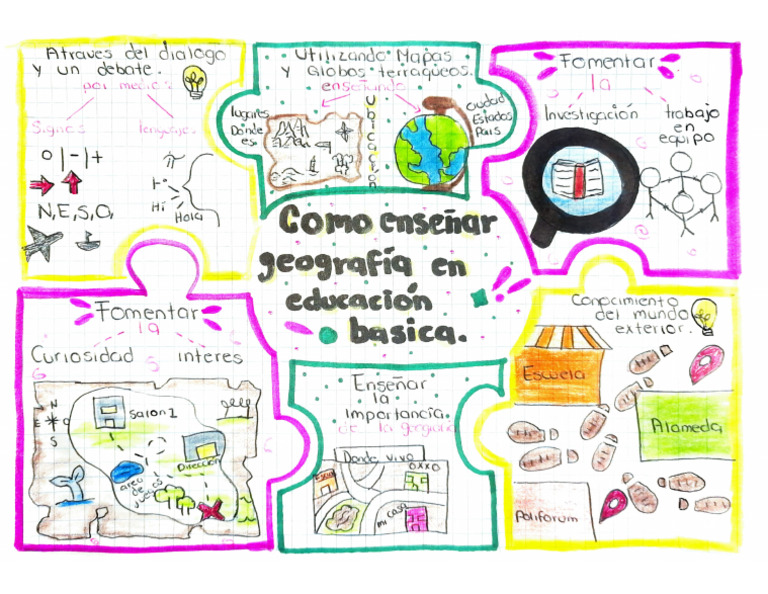 Atraves del dialogo
y un debate.
por medio:
Signos
lenguajes
N,E,S,O,
Hi
Hola
Utilizando Mapas
y Globos terraqueos.
enseñando
lugares
Donde
es
Ubicación
ciudad
Estados
País
Fomentar
la
Investigación
trabajo
en
equipo
Como enseñar
geografía en
educación
basica.
Fomentar
la
Curiosidad
interes
N
E
S
Salon 1
Dirección
area
de
juegos
Enseñar
la
importancia
de la
Donde vivo
OXXO
mi casa
Conocimiento
del mundo
exterior.
Escuela
Alameda
Poliforum